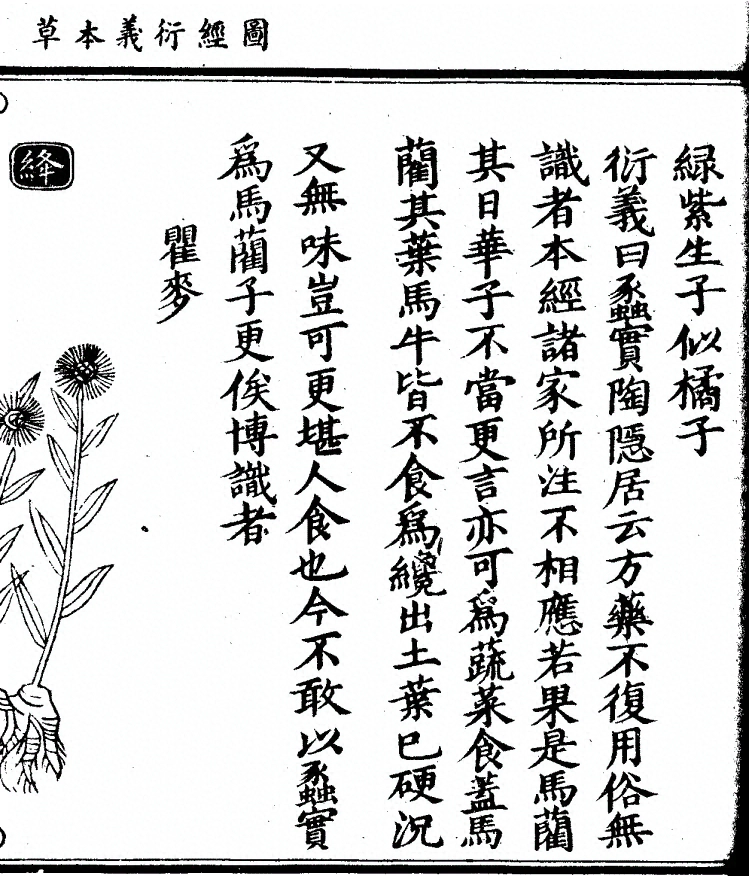 圖經衍義本草
緑紫生子似橘子
衍義曰蠡實陶隱居云方藥不復用俗無
識者本經諸家所注不相應若果是馬藺
其日華子不當更言亦可爲蔬菜食蓋馬
藺其葉馬牛皆不食爲纔出土葉已硬況
又無味豈可更堪人食也今不敢以蠡實
爲馬藺子更俟博識者
瞿麥
絳